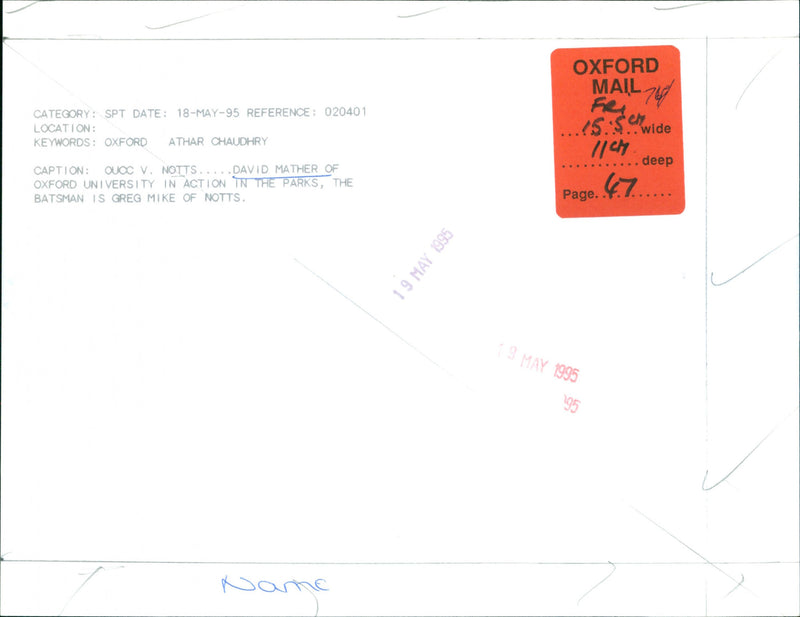 CATEGORY: SPT DATE: 18-MAY-95 REFERENCE: 020401
LOCATION:
KEYWORDS: OXFORD ATHAR CHAUDHRY
CAPTION: OUCC V. NOTTS.....DAVID MATHER OF
OXFORD UNIVERSITY IN ACTION IN THE PARKS, THE
BATSMAN IS GREG MIKE OF NOTTS.
OXFORD
MAIL
FRI
....15.5cm wide
11cm
............deep
Page..47.........
19 MAY 1995
19 MAY 1995
95
Name